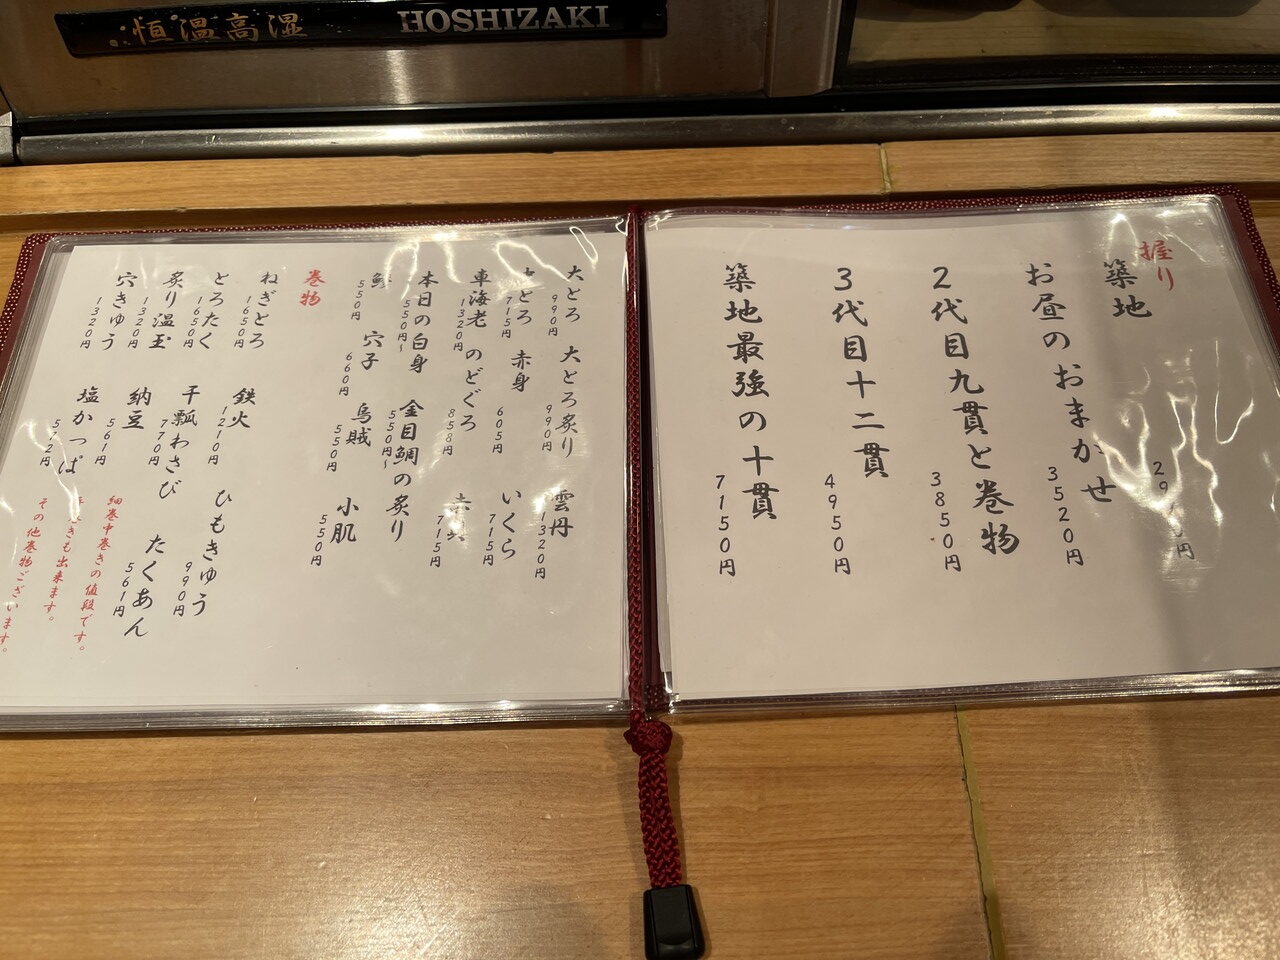 恒温高湿
HOSHIZAKI
握り
築地
お昼のおまかせ
3520円
2代目九貫と巻物
3850円
3代目十二貫
4950円
築地最強の十貫
7150円
大とろ
990円
大とろ炙り
990円
雲丹
1320円
とろ
715円
赤身
605円
いくら
715円
車海老
1320円
のどぐろ
858円
715円
本日の白身
550円〜
金目鯛の炙り
550円〜
550円
穴子
660円
烏賊
550円
小肌
550円
巻物
ねぎとろ
1650円
鉄火
1210円
ひもきゅう
990円
とろたく
1650円
干瓢わさび
770円
たくあん
561円
炙り温玉
1320円
納豆
561円
穴きゅう
1320円
塩かっぱ
512円
細巻中巻きの値段です。
きも出来ます。
その他巻物ございます。